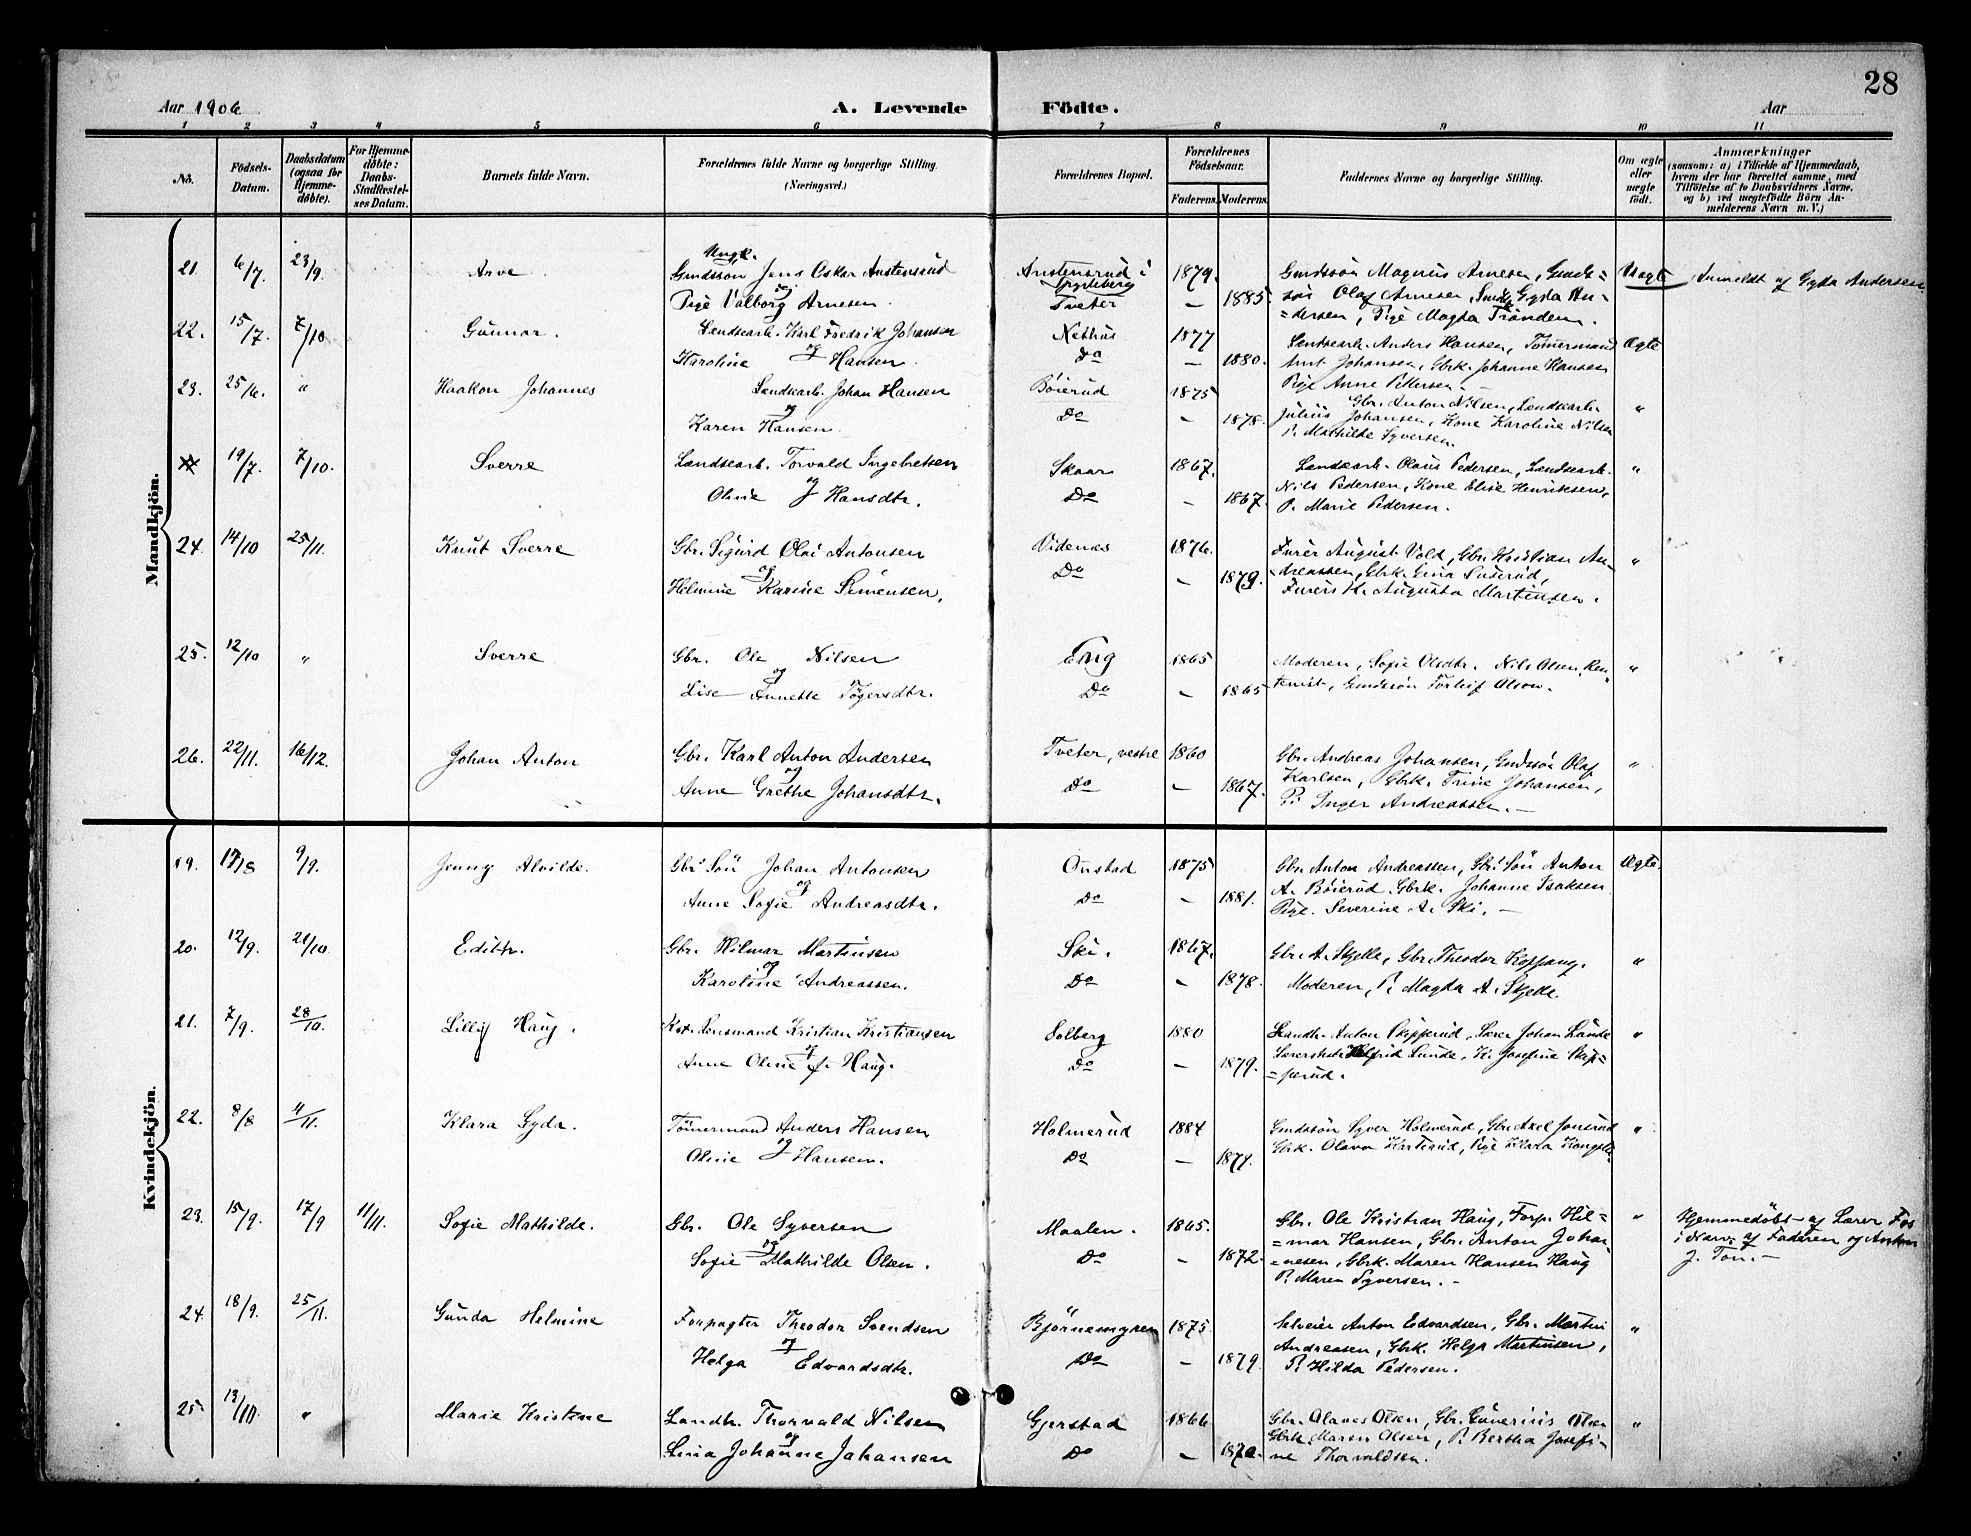 28
Aar 1906 A. Levende Födte. Aar
1 2 3 4 5 6 7 8 9 10 11
No. Födsels-Datum. Daabsdatum (ogsaa for Hjemmedöbte). For Hjemmedöbte: Daabs-Stadfæstelses Datum. Barnets fulde Navn. Forældrenes fulde Navne og borgerlige Stilling. (Næringsvei.) Forældrenes Bopæl. Forældrenes Födselsaar. Faderens. Moderens. Faddernes Navne og borgerlige Stilling. Om ægte eller uægte födt. Anmærkninger (saasom: a) i Tilfælde af Hjemmedaab, hvem der har forrettet samme, med Tilföielse af to Daabsvidners Navne, og b) ved uægtefödte Börn Anmelderens Navn m. V.)
Mandkjön.
Ungk.
21. 6/7 23/9. Arve Gaardssön Jens Oskar Austensrud Austensrud i 1879. Gaardssön Magnus Arnesen, Gaards= Uægte Anmeldt af Gyda Andersen
og Trygstad
Pige Valborg Arnesen. Tveter — 1885 sön Olaf Arnesen, Gyda An=
=dersen, Pige Magda Tranden.
22. 15/7. 7/10 Gunnar. Landsarb. Karl Fredrik Johansen Nethus 1877 Landsarb. Anders Hansen, Tömermand Ægte
Karoline og Hansen. Do — 1880. Amt Johansen, Gbrk. Johanne Hansen
Pige Anne Pettersen. —
23. 25/6. " Haakon Johannes Landsarb. Johan Hansen Böierud 1875 Gbr. Anton Nilsen, Landsarb. "
og
Karen Hansen Do — 1878. Julius Johansen, Kone Karoline Nilsen
P. Mathilde Syversen.
19/7. 7/10. Sverre Landsarb. Torvald Ingebretsen Skaar 1867. Landsarb. Olaus Pedersen, Landsarb. "
Oline og Hansdtr. Do — 1867. Nils Pedersen, Kone Elise Henriksen,
P. Marie Pedersen.
24. 14/10 25/11. Knut Sverre Gbr. Sigurd Olai Antonsen Videnes 1876. Furér August Vold, Gbr. Kristian An= "
og
Helmine Karine Simensen. Do — 1879. =dreassen, Gbrk. Gina Suserud,
Furérs K. Augusta Martinsen.
25. 12/10 " Sverre Gbr. Ole Nilsen Eng 1865 Moderen, Sofie Olsdtr. Nils Olsen, "
og
Lise Annette Tögersdtr. Do — 1865 Gaardssön Torleif Olsen.
26. 22/11. 16/12. Johan Anton Gbr. Karl Anton Andersen Tveter, vestre 1860 Gbr. Andreas Johansen, Gaardssön Olaf "
og
Anne Grethe Johansdtr. Do — 1867. Karlsen, Gbrk. Trine Johansen,
P. Inger Andreassen. —
Kvindekjön.
19. 17/8 9/9. Jenny Alvilde. Gbr. Sön Johan Antonsen Onstad 1875 Gbr. Anton Andreassen, Gbr. Sön Anton Ægte.
og
Anne Sofie Andreasdtr. Do — 1881. A. Böierud Gbrk. Johanne Isaksen
Pige Severine A. Ski. —
20. 12/9. 21/10 Edith. Gbr. Hilmar Martinsen Ski. 1867. Gbr. A. Skjelle, Gbr. Theodor Koppang. "
og
Karoline Andreassen. Do — 1878. Moderen, P. Magda A. Skjelle.
21. 7/9. 28/10. Lilly Haug. Kst. Lensmand Kristian Kristiansen Solberg 1880 Landh. Anton Skipperud, Lærer Johan Lunde "
Anne Oline og Haug. Do — 1879. Lunde, K. Josefine Skip=
=perud.
22. 8/8 4/11. Klara Gyda. Tömermand Anders Hansen Holmerud 1884 Gaardssön Syver Holmerud, Gbr. Axel Jonsrud "
Oline og Hansen. Do — 1871. Gbrk. Olava Karterud, Pige Klara
23. 15/9. 17/9 11/11. Sofie Mathilde. Gbr. Ole Syversen Maalen. 1865. Gbr. Ole Kristian Haug, Forp. Hil= " Hjemmedöbt af Lærer Fos
og
Sofie Mathilde Olsen. Do — 1872. =mar Hansen, Gbr. Anton Johan= i Nærv. af Faderen og Anton
=nesen, Gbrk. Maren Hansen Haug J. Ton. —
P. Maren Syversen. —
24. 18/9. 25/11. Gunda Helmine Forpagter Theodor Svendsen Björnemyren 1875. Anton Edvardsen, Gbr. Martin "
Helga og Edvardsdtr. Do — 1879. Andreasen, Gbrk. Helga Martinsen,
P. Hilda Pedersen.
25. 13/10. " Marie Kristine Landh. Thorvald Nilsen Gjerstad 1866 Gbr. Olaves Olsen, Gbr. Gunerius Olsen "
og
Lina Johanne Johansen Do — 1870. Gbrk. Maren Olsen, P. Bertha Josefi=
ne Thorvaldsen.